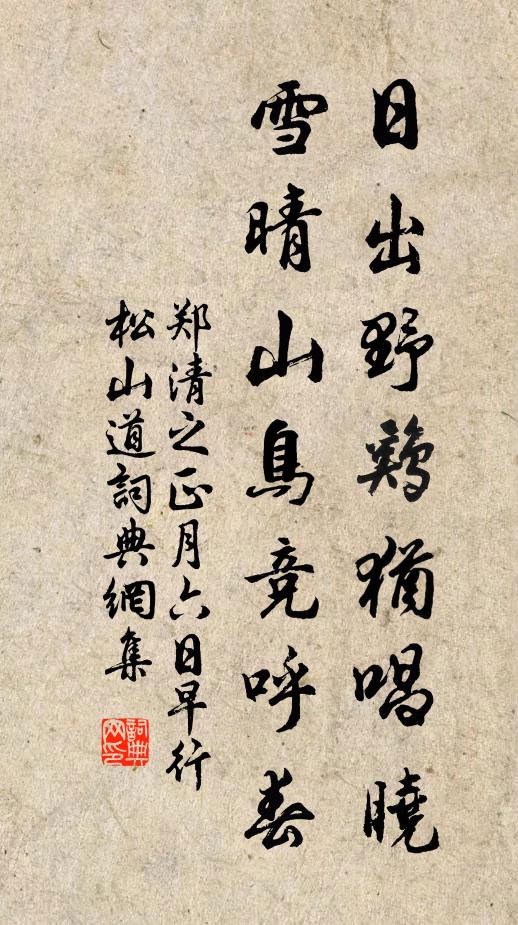 日出野鷄猶唱曉
雪晴山鳥競呼春
郑清之正月六日早行
松山道詞典網集
詞典
网印